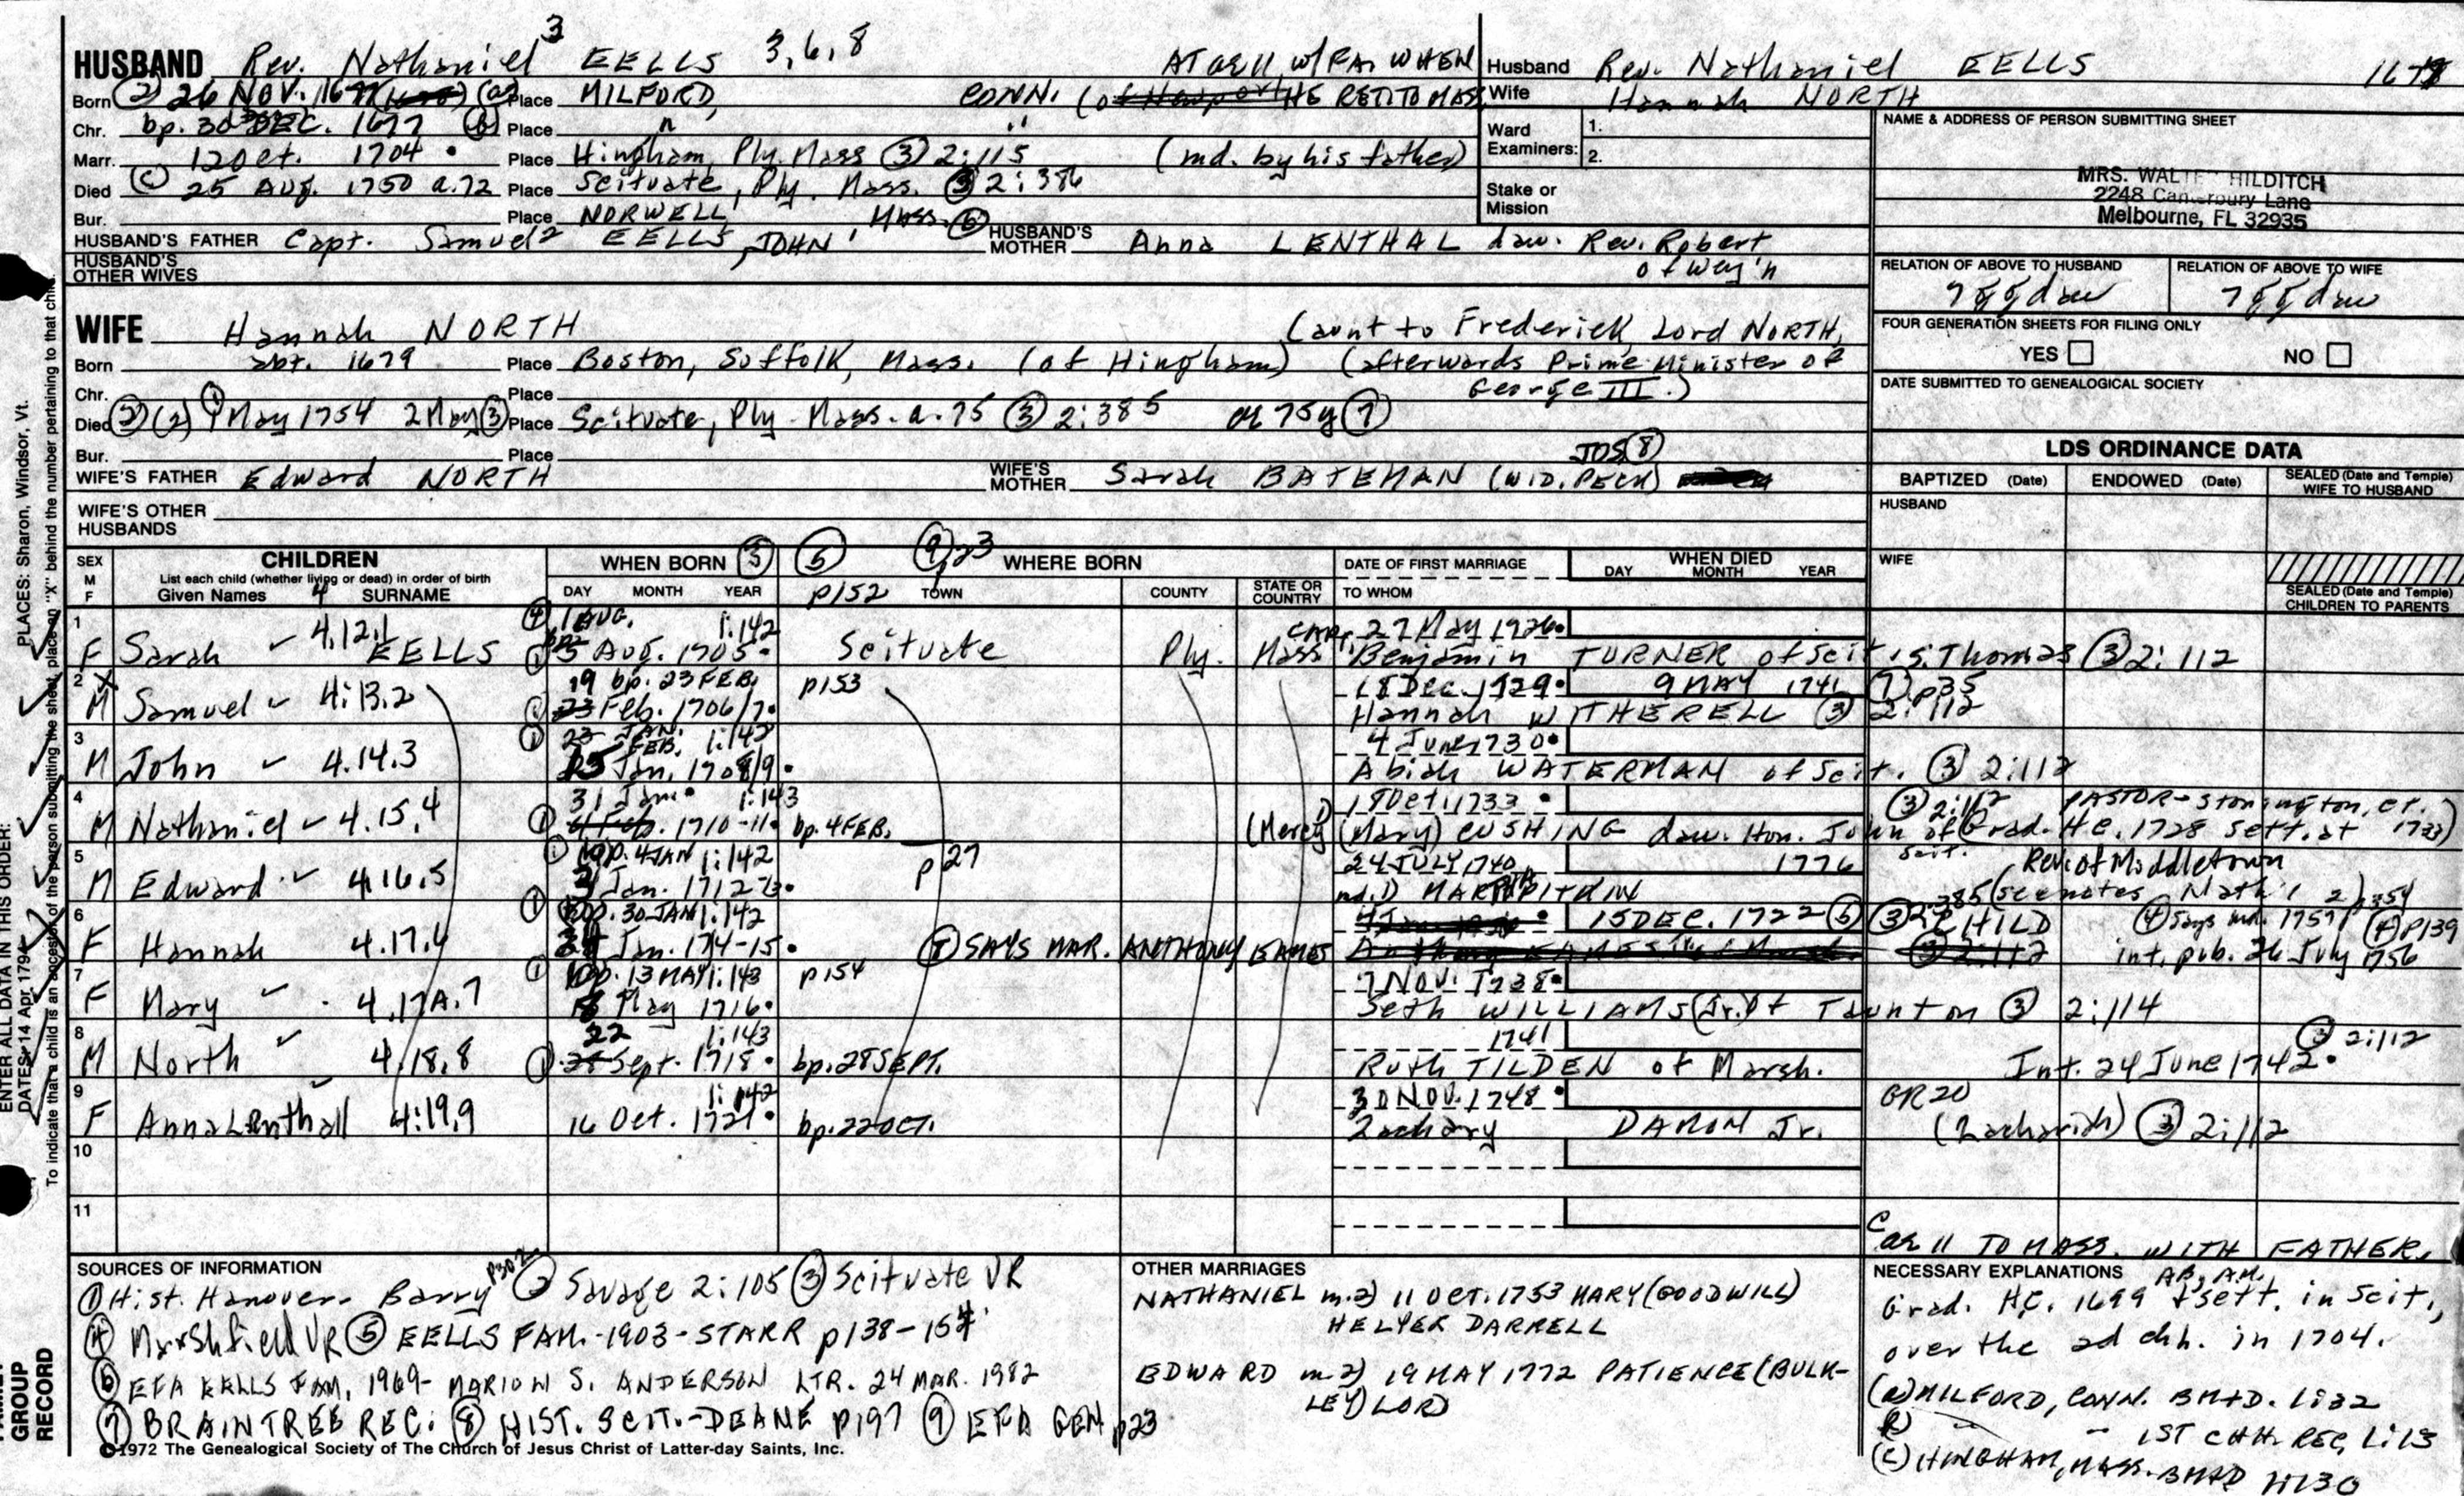 HUSBAND Rev. Nathaniel 3 EELLS 3,6,8 AT AGE 11, W/FA. WHEN
Born (2) 26 NOV. 1677 (a) Place MILFORD, CONN. (of Newport HE RET'D TO MASS
Chr. bp. 30 DEC. 1677 (b) Place " "
Marr. 12 Oct. 1704 • Place Hingham, Ply. Mass (3) 2:115 (md. by his father)
Died (c) 25 AUG. 1750 a.72 Place Scituate, Ply. Mass. (3) 2:386
Bur. Place NORWELL, MASS. (6)
HUSBAND'S FATHER Capt. Samuel 2 EELLS, JOHN 1 HUSBAND'S MOTHER Anna LENTHAL daw. Rev. Robert
of Wey'n
HUSBAND'S OTHER WIVES
Husband Rev. Nathaniel EELLS
Wife Hannah NORTH
Ward Examiners: 1.
2.
Stake or Mission
NAME & ADDRESS OF PERSON SUBMITTING SHEET
MRS. WALTER HILDITCH
2248 Canterbury Lane
Melbourne, FL 32935
RELATION OF ABOVE TO HUSBAND RELATION OF ABOVE TO WIFE
7 g g daw 7 g g daw
FOUR GENERATION SHEETS FOR FILING ONLY
YES NO
DATE SUBMITTED TO GENEALOGICAL SOCIETY
WIFE Hannah NORTH (aunt to Frederick, Lord NORTH,
Born abt. 1679 Place Boston, Suffolk, Mass. (of Hingham) (afterwards Prime Minister of
Chr. Place George III.)
Died (2) (2) (1) May 1754 2 May (3) Place Scituate, Ply Mass. a. 75 (3) 2:385 ae 75y (7)
Bur. Place JOS (8)
WIFE'S FATHER Edward NORTH WIFE'S MOTHER Sarah BATEMAN (WID. PECK)
WIFE'S OTHER HUSBANDS
LDS ORDINANCE DATA
BAPTIZED (Date) ENDOWED (Date) SEALED (Date and Temple) WIFE TO HUSBAND
HUSBAND
WIFE
SEALED (Date and Temple) CHILDREN TO PARENTS
SEX M F CHILDREN
List each child (whether living or dead) in order of birth
Given Names 4 SURNAME
WHEN BORN (3) (5) (9) p23 WHERE BORN
DAY MONTH YEAR p152 TOWN COUNTY STATE OR COUNTRY
DATE OF FIRST MARRIAGE
TO WHOM
WHEN DIED
DAY MONTH YEAR
1 (4) 1 AUG. 1:142 27 May 1726 •
F Sarah 4.12.1 EELLS (1) 5 Aug. 1705 • Scituate Ply. Mass Benjamin TURNER of Scit. s. Thomas (3) 2:112
2 X 19 bp. 23 FEB. p153 18 Dec. 1729 • 9 MAY 1741 (7) p35
M Samuel 4:13.2 (1) 23 Feb. 1706/7 • Hannah WITHERELL (3) 2:112
3 (1) 23 JAN. FEB. 1:142 4 June 1730 •
M John 4.14.3 Jan. 1708/9 • Abiah WATERMAN of Scit. (3) 2:112
4 31 Jan • 1:143 18 Oct. 1733 • (3) 2:112 PASTOR - Stonington, Ct.
M Nathaniel 4.15.4 (1) 4 Feb. 1710-11 • bp. 4 FEB. (Mercy) (Mary) CUSHING daw. Hon. John of Scit. (Grad. H.C. 1728 sett. at 1733)
5 (1) bp. 4 JAN 1:142 p 27 24 JULY 1740 1776 Rev. of Middletown
M Edward 4.16.5 Jan. 1712-13 • md. 1) MARTHA PITKIN 2:385 (see notes Nath'l 2) 1354
6 (1) bp. 30 JAN 1:142 15 DEC. 1722 (5) (3) CHILD (4) Says md. 1757 p139
F Hannah 4.17.6 Jan. 1714-15 • (7) SAYS MAR. ANTHONY EAMES (3) 2:112 int. pub. 26 July 1756
7 (1) bp. 13 MAY 1:143 p154 7 NOV. 1738 •
F Mary 4.17A.7 May 1716 • Seth WILLIAMS (Jr.) of Taunton (3) 2:114
8 22 1:143 1741 (3) 2:112
M North 4.18.8 (1) 28 Sept. 1718 • bp. 28 SEPT. Ruth TILDEN of Marsh. Int. 24 June 1742 •
9 1:142 30 NOV. 1748 • GR 20
F Anna Lenthall 4:19.9 16 Oct. 1721 • bp. 22 OCT. Zachary DAMON Jr. (Zachariah) (3) 2:112
10
11
C ae 11 TO MASS. WITH FATHER.
SOURCES OF INFORMATION
(1) Hist. Hanover - Barry p302 (2) Savage 2:105 (3) Scituate VR
(4) Marshfield VR (5) EELLS FAM. - 1903 - STARR p138-154
(6) EFA EELLS FAM, 1969 - MARION S. ANDERSON LTR. 24 MAR. 1982
(7) BRAINTREE REC. (8) HIST. SCIT. - DEANE p197 (9) EFA GEN p23
©1972 The Genealogical Society of The Church of Jesus Christ of Latter-day Saints, Inc.
OTHER MARRIAGES
NATHANIEL m. 2) 11 OCT. 1753 MARY (GOODWILL)
HELYER DARRELL
EDWARD m. 2) 19 MAY 1772 PATIENCE (BULK-
LEY) LORD
NECESSARY EXPLANATIONS AB, A.M.
Grad. H.C. 1699 & sett. in Scit.,
over the 2d chh. in 1704.
(a) MILFORD, CONN. BM+D. 1:32
(b) " " 1ST CHH. REC, 1:13
(c) HINGHAM, MASS. BM+D
PLACES: Sharon, Windsor, Vt.
ENTER ALL DATA IN THIS ORDER:
DATES: 14 Apr. 1794
To indicate that a child is an ancestor of the person submitting the sheet, place an "X" behind the number pertaining to that child.
GROUP
RECORD